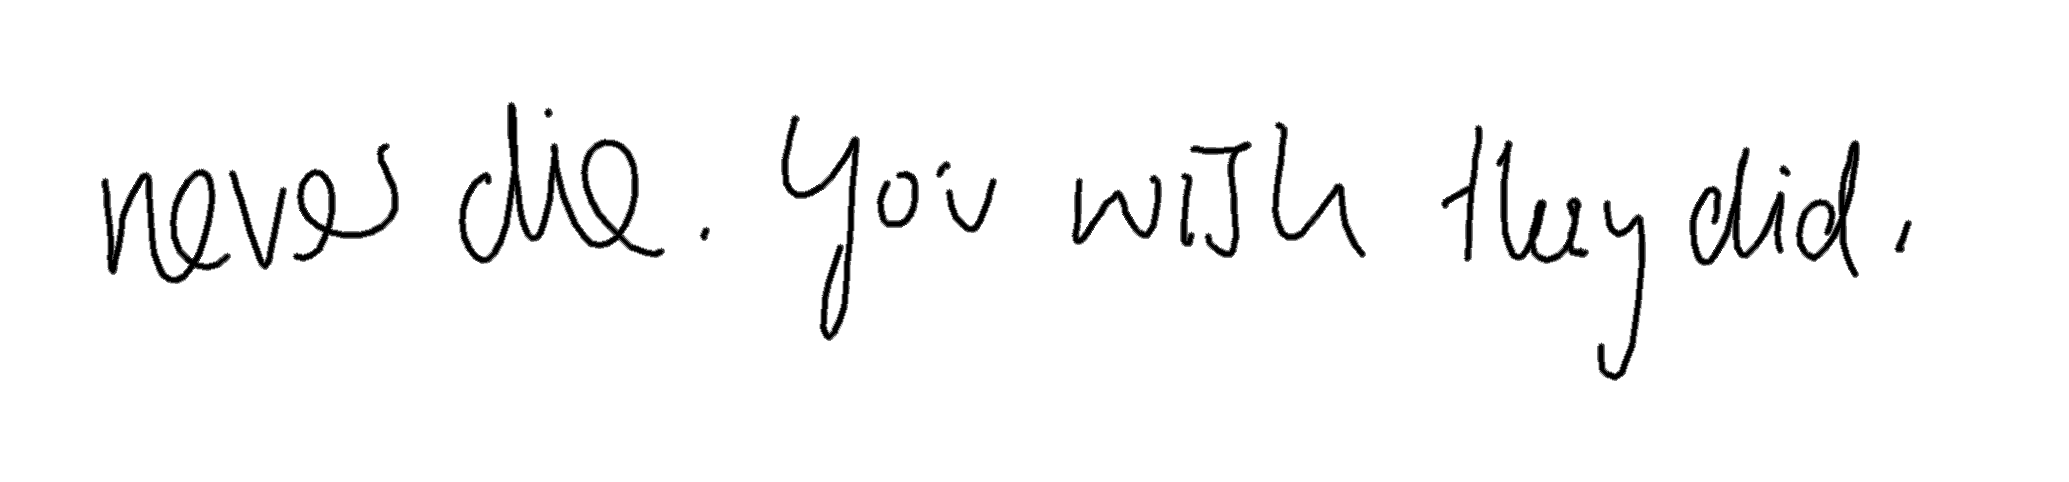 never die. You wish they did.